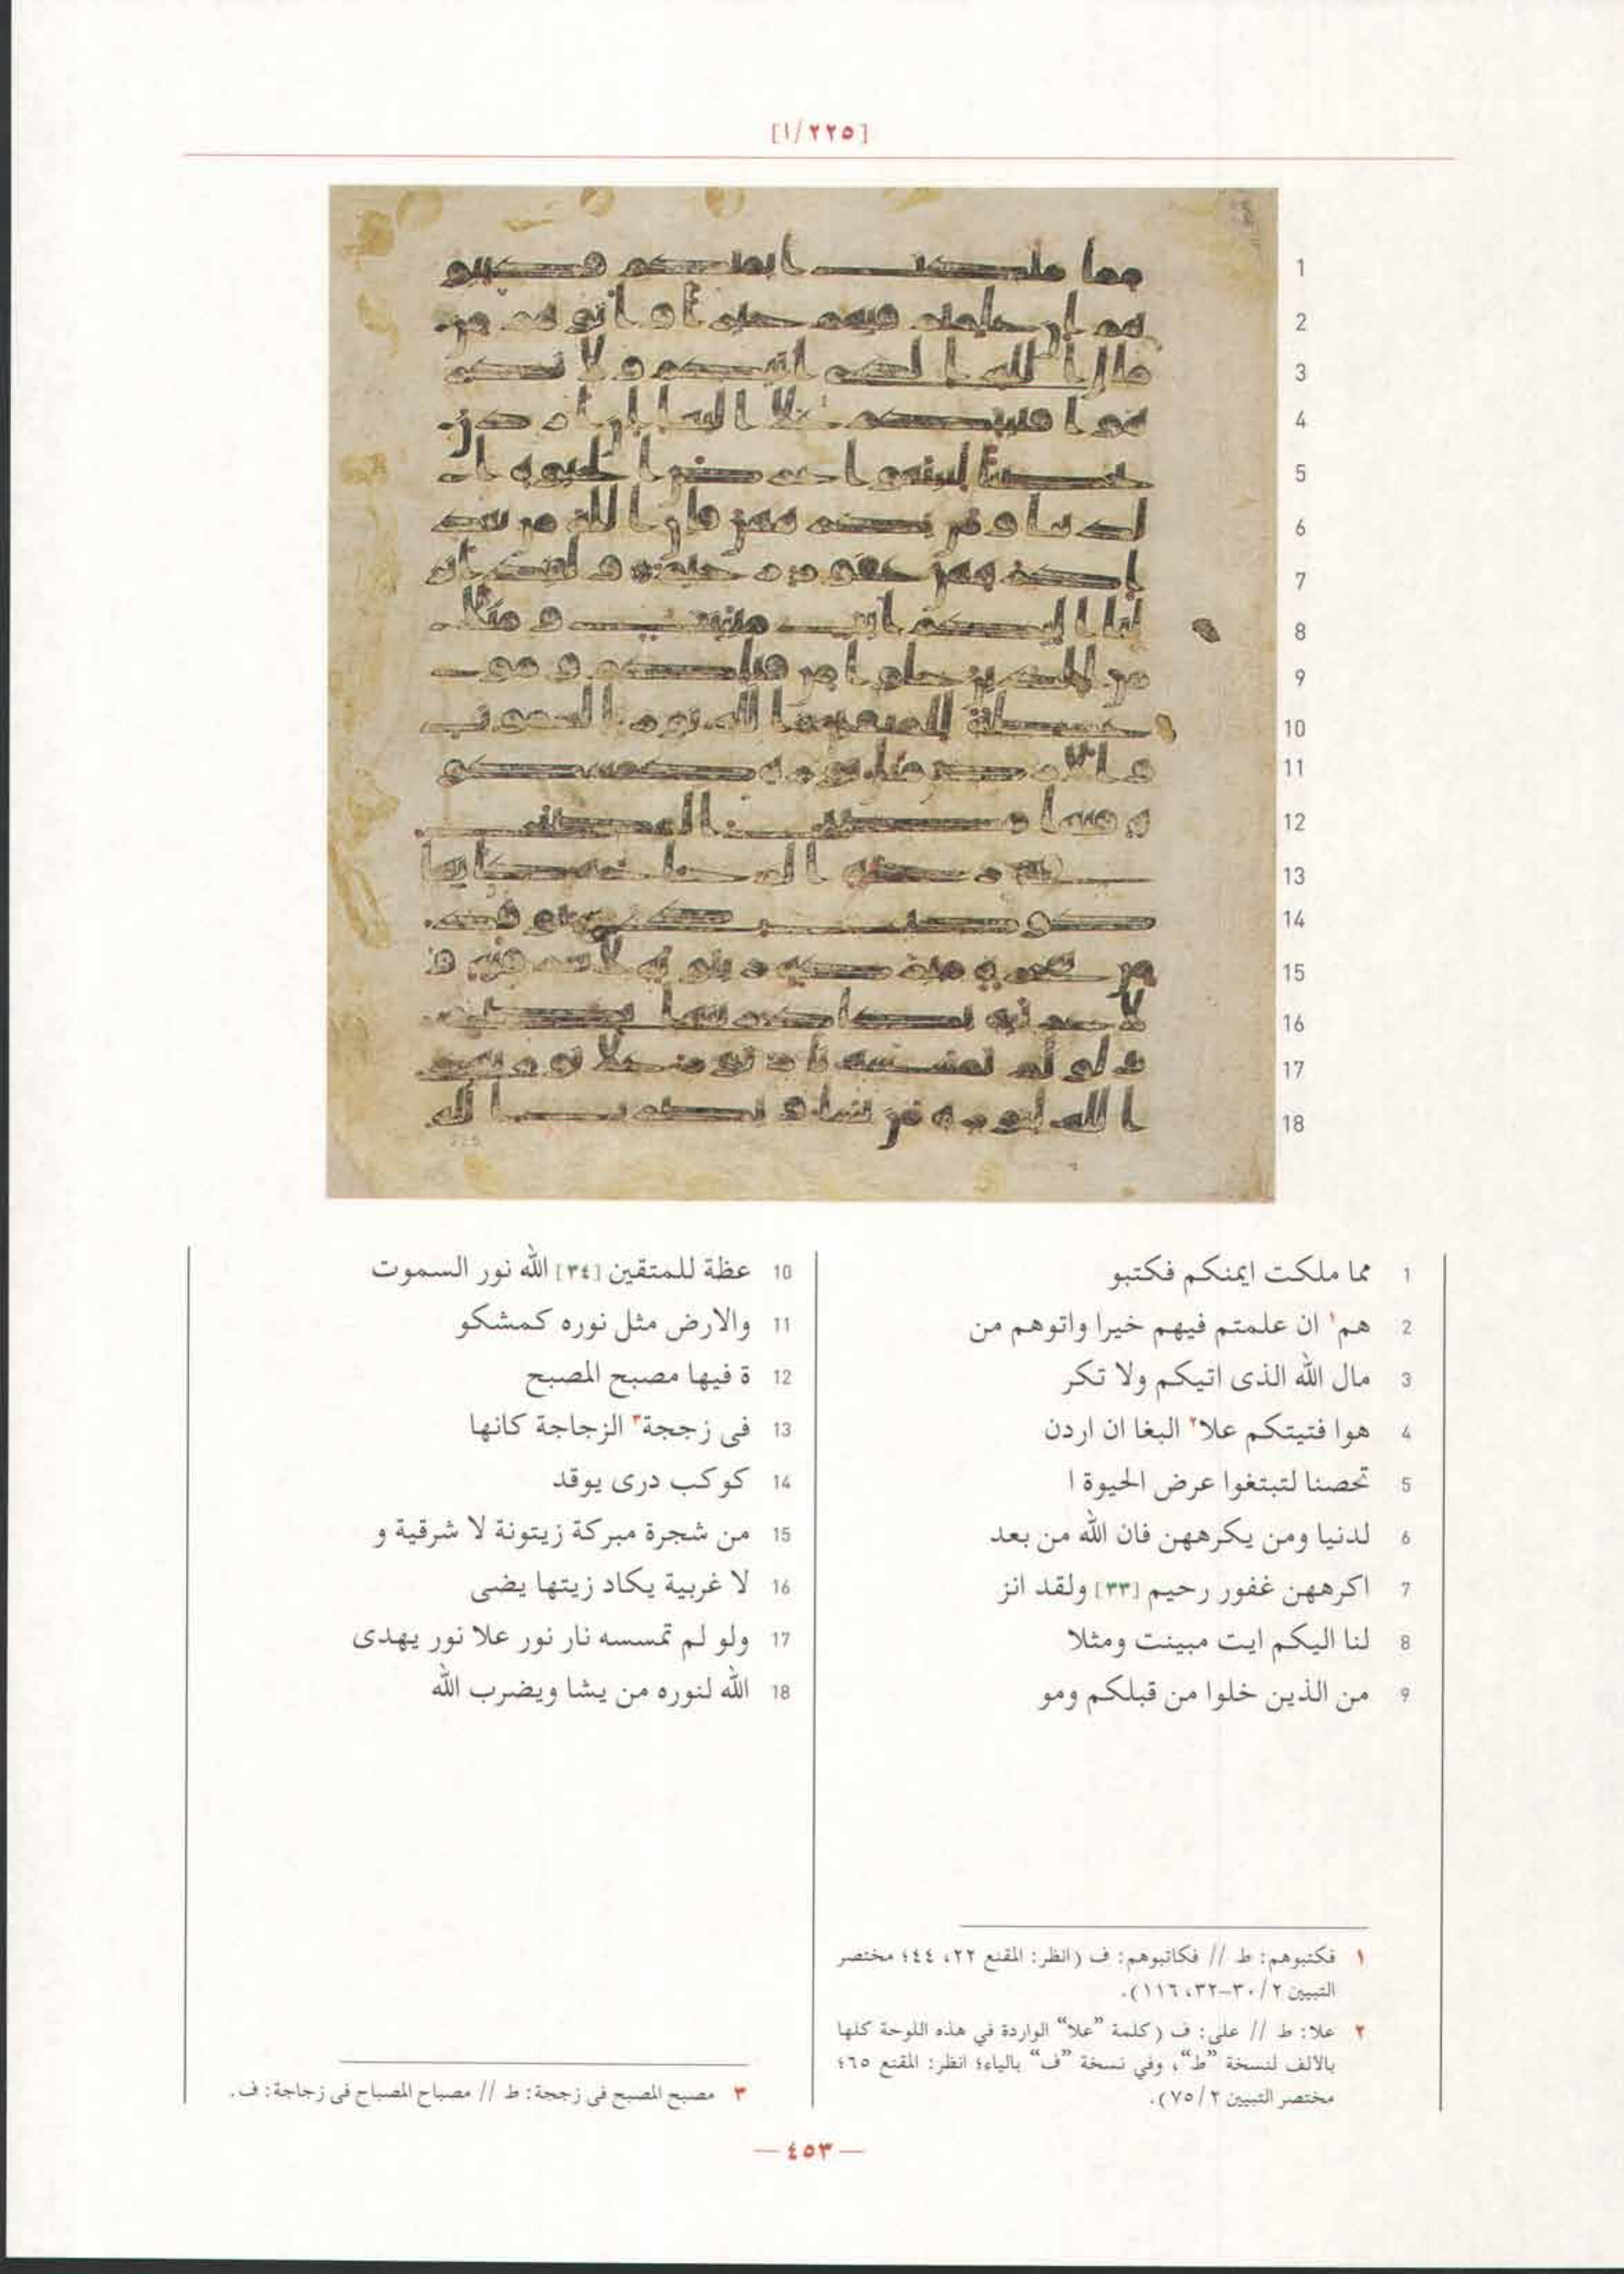 [١/٢٢٥]
1 مما ملكت ايمنكم فكتبو
2 هم١ ان علمتم فيهم خيرا واتوهم من
3 مال الله الذى اتيكم ولا تكر
4 هوا فتيتكم علا٢ البغا ان اردن
5 تحصنا لتبتغوا عرض الحيوة ا
6 لدنيا ومن يكرههن فان الله من بعد
7 اكرههن غفور رحيم [٣٣] ولقد انز
8 لنا اليكم ايت مبينت ومثلا
9 من الذين خلوا من قبلكم ومو
10 عظة للمتقين [٣٤] الله نور السموت
11 والارض مثل نوره كمشكو
12 ة فيها مصبح المصبح
13 فى زججة٣ الزجاجة كانها
14 كوكب درى يوقد
15 من شجرة مبركة زيتونة لا شرقية و
16 لا غربية يكاد زيتها يضى
17 ولو لم تمسسه نار نور علا نور يهدى
18 الله لنوره من يشا ويضرب الله
١ فكتبوهم: ط // فكاتبوهم: ف (انظر: المقنع ٢٢، ٤٤؛ مختصر
التبيين ٢/ ٣٠-٣٢، ١١٦).
٢ علا: ط // على: ف (كلمة ”علا“ الواردة في هذه اللوحة كلها
بالألف لنسخة ”ط“، وفي نسخة ”ف“ بالياء؛ انظر: المقنع ٦٥؛
مختصر التبيين ٢/ ٧٥).
٣ مصبح المصبح فى زججة: ط // مصباح المصباح فى زجاجة: ف.
— ٤٥٣ —